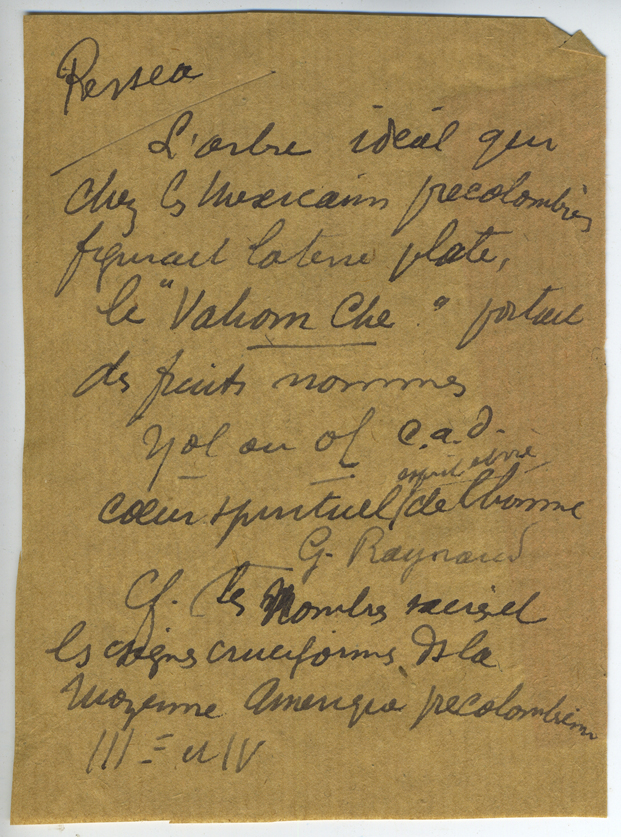 L'arbre idéal qui
chez les Mexicains precolombiens
figurait la terre plate,
le "Vahom Che" portait
des fruits nommes
yol ou ol c.a.d.
esprit
coeur spirituel de l'homme
G. Raynaud
Cf. les Nombres sacrés et
les signes cruciformes ds la
Moyenne Amerique precolombienne
III = et IV